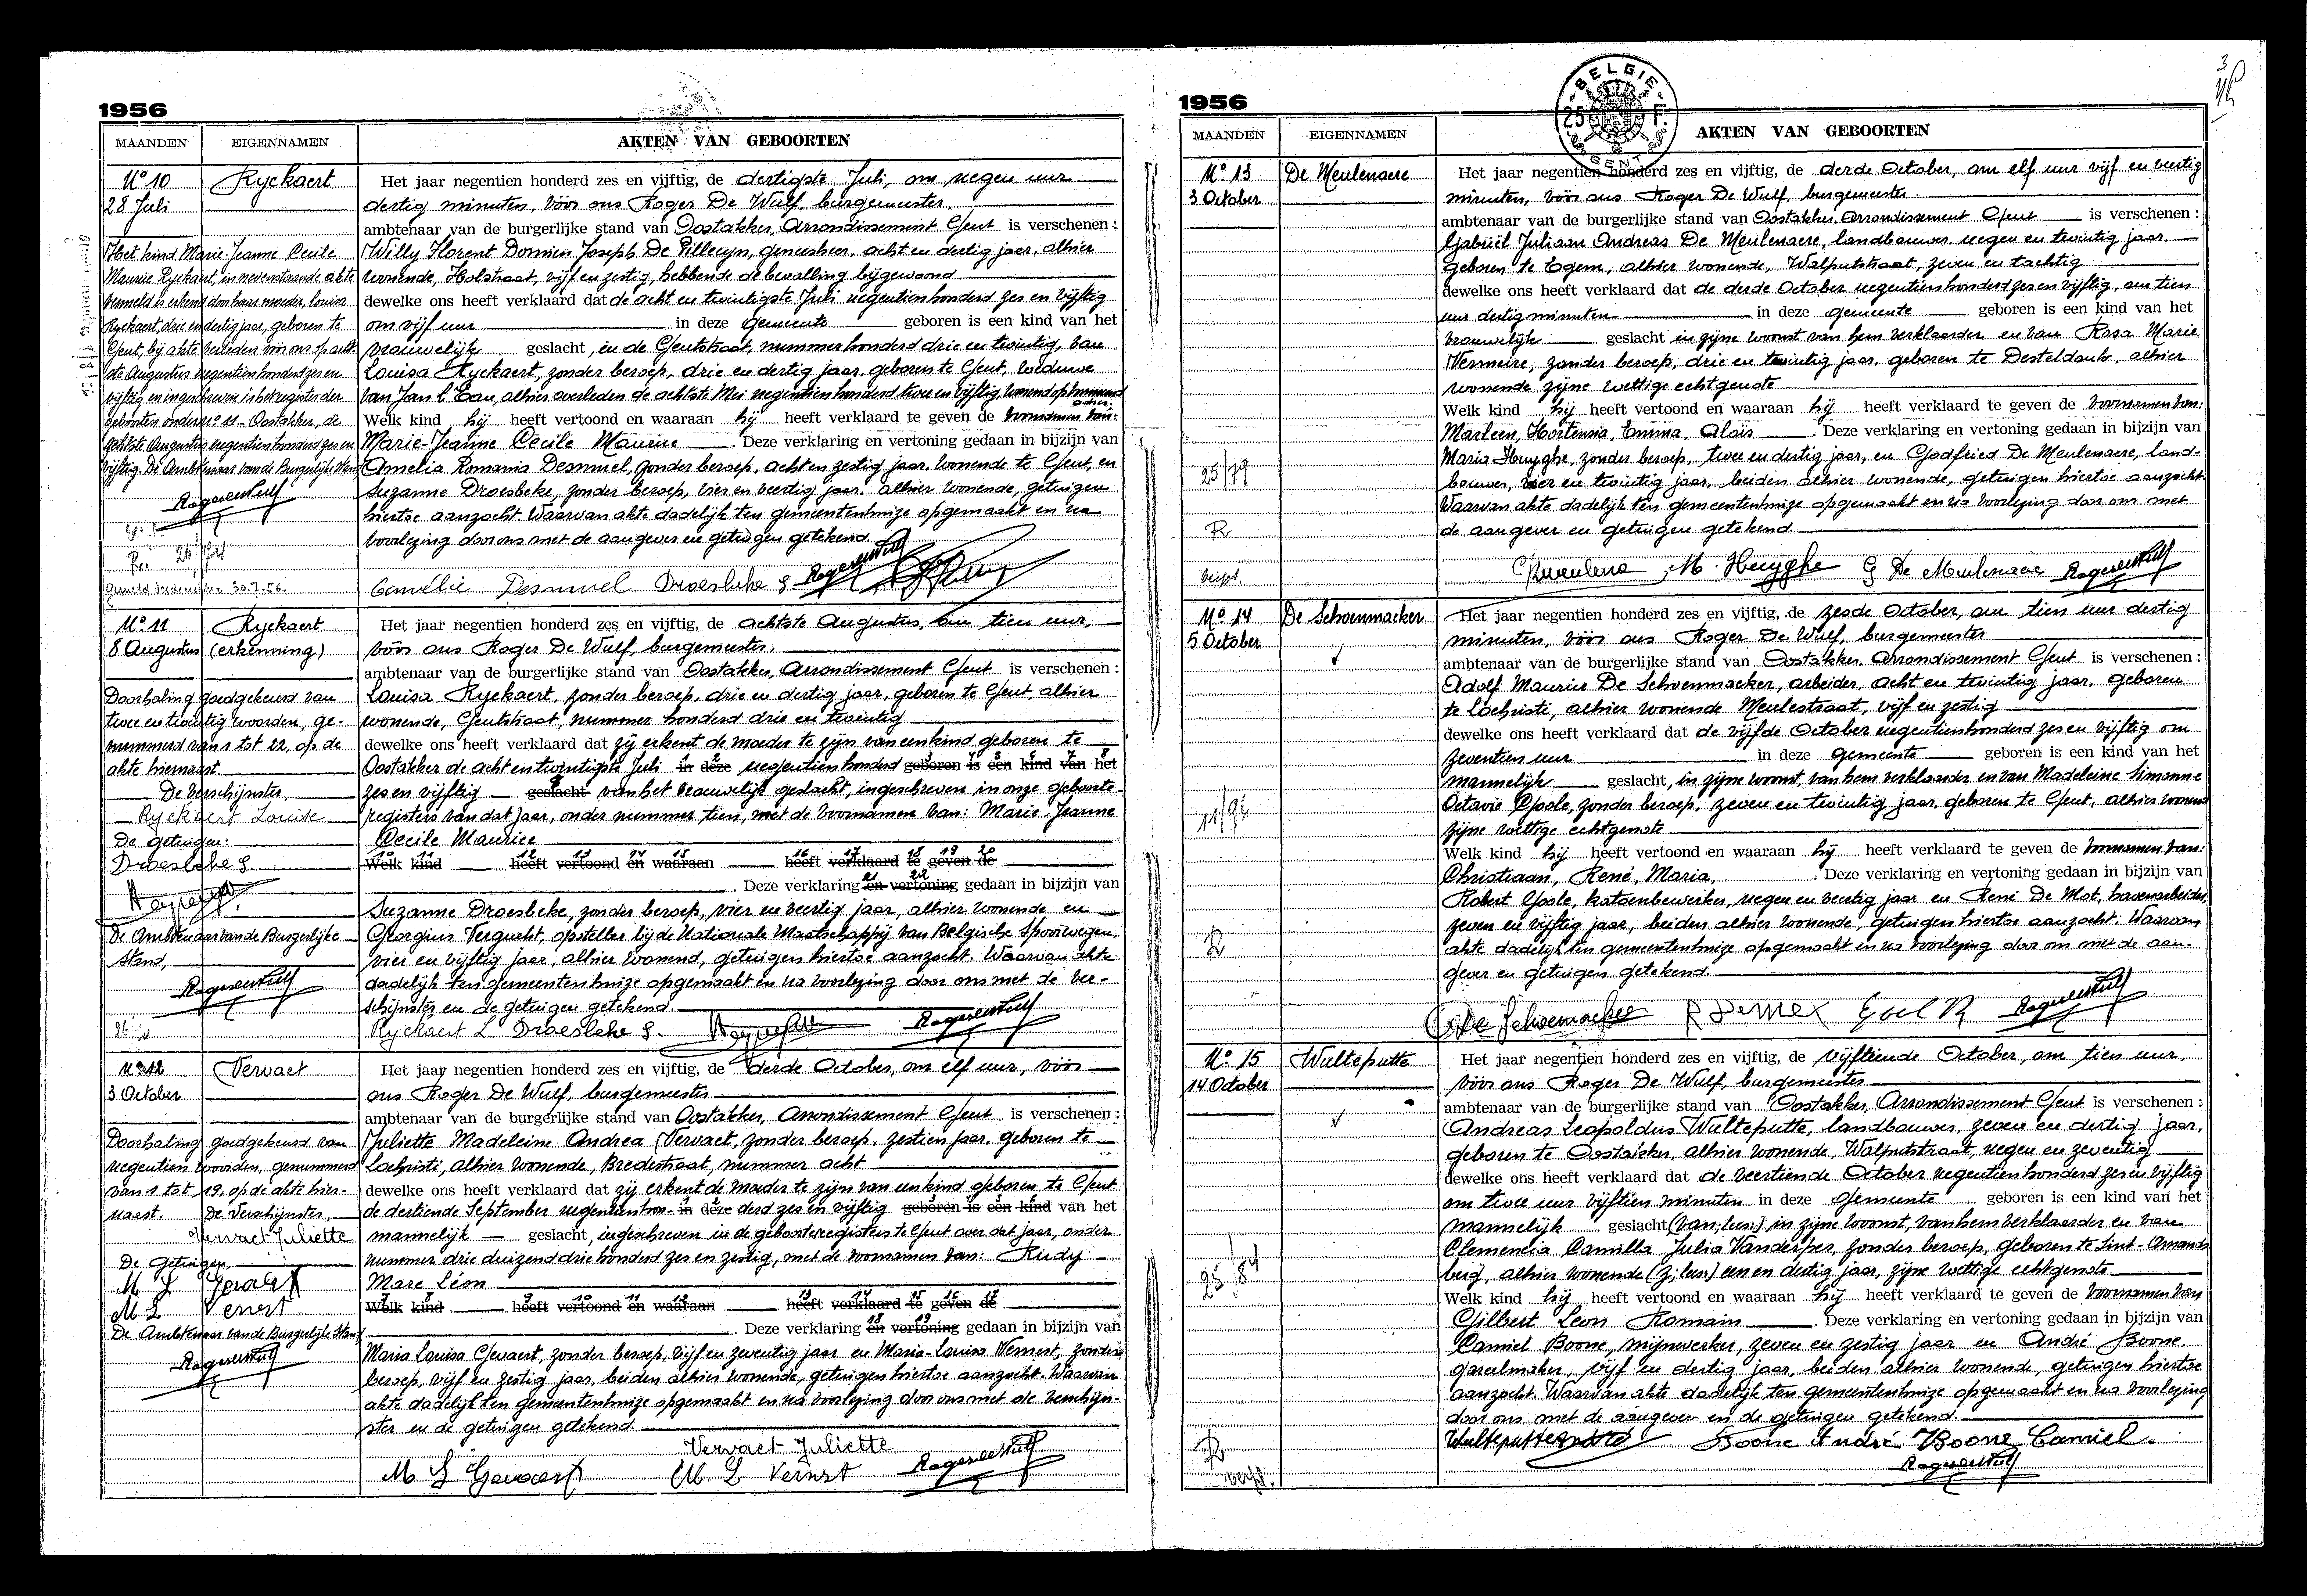 1956
MAANDEN EIGENNAMEN AKTEN VAN GEBOORTEN
N° 10 Ryckaert
28 Juli
Het kind Marie Jeanne Cecile
Maurice Ryckaert, in nevenstaande akte
vermeld is erkend door haar moeder, Louisa
Ryckaert, drie en dertig jaar, geboren te
Gent, bij akte verleden vóór ons op acht-
ste Augustus negentien honderd zes en
vijftig en ingeschreven in het register der
geboorten onder n° 11 - Oostakker, de
achtste Augustus negentien honderd zes en
vijftig. De Ambtenaar van de Burgerlijke Stand
Het jaar negentien honderd zes en vijftig, de dertigste Juli, om negen uur
dertig minuten, vóór ons Roger De Wulf, burgemeester,
ambtenaar van de burgerlijke stand van Oostakker, Arrondissement Gent is verschenen :
Willy Florent Domien Joseph De Pillecyn, geneesheer, acht en dertig jaar, alhier
wonende, Holstraat, vijf en zestig, hebbende de bevalling bijgewoond
dewelke ons heeft verklaard dat de acht en twintigste Juli negentienhonderd zes en vijftig
om vijf uur in deze gemeente geboren is een kind van het
vrouwelijk geslacht, in de Gentstraat, nummer honderd drie en twintig, van
Louisa Ryckaert, zonder beroep, drie en dertig jaar, geboren te Gent, weduwe
van Jan L'Eau, alhier overleden de achtste Mei negentien honderd twee en vijftig, wonend op hetzelfde
Welk kind hij heeft vertoond en waaraan hij heeft verklaard te geven de voornamen van:
Marie-Jeanne Cecile Maurice . Deze verklaring en vertoning gedaan in bijzijn van
Amelia Romania Desmuel, zonder beroep, acht en zestig jaar, wonende te Gent, en
Suzanne Droesbeke, zonder beroep, vier en veertig jaar, alhier wonende, getuigen
hiertoe aanzocht. Waarvan akte dadelijk ten gemeentenhuize opgemaakt en na
voorlezing door ons met de aangever en getuigen getekend.
30.7.56.
Camélie Desmuel Droesbeke S.
N° 11 Ryckaert
8 Augustus (erkenning)
Doorhaling goedgekeurd van
twee en twintig woorden, ge-
nummerd van 1 tot 22, op de
akte hiernaast.
De verschijnster,
Ryckaert Louise
De getuigen:
Droesbeke S.
De Ambtenaar van de Burgerlijke
Stand,
Het jaar negentien honderd zes en vijftig, de achtste Augustus, om tien uur,
vóór ons Roger De Wulf, burgemeester,
ambtenaar van de burgerlijke stand van Oostakker, Arrondissement Gent is verschenen :
Louisa Ryckaert, zonder beroep, drie en dertig jaar, geboren te Gent, alhier
wonende, Gentstraat, nummer honderd drie en twintig
dewelke ons heeft verklaard dat zij erkent de moeder te zijn van een kind geboren te
Oostakker de acht en twintigste Juli in deze negentien honderd geboren is een kind van het
zes en vijftig geslacht van het vrouwelijk geslacht, ingeschreven in onze geboorte-
registers van dat jaar, onder nummer tien, met de voornamen van: Marie-Jeanne
Cecile Maurice
Welk kind heeft vertoond en waaraan heeft verklaard te geven de
. Deze verklaring en vertoning gedaan in bijzijn van
Suzanne Droesbeke, zonder beroep, vier en veertig jaar, alhier wonende en
Georgius Vergucht, opsteller bij de Nationale Maatschappij van Belgische Spoorwegen,
vier en vijftig jaar, alhier wonend, getuigen hiertoe aanzocht. Waarvan akte
dadelijk ten gemeentenhuize opgemaakt en na voorlezing door ons met de ver-
schijnster en de getuigen getekend.
Ryckaert L Droesbeke S.
N° 12 Vervaet
3 October
Doorhaling goedgekeurd van
negentien woorden, genummerd
van 1 tot 19, op de akte hier-
naast. De Verschijnster,
Vervaet Juliette
De getuigen,
M L Gevaert
M L Vernst
De Ambtenaar van de Burgerlijke Stand
Het jaar negentien honderd zes en vijftig, de derde October, om elf uur, vóór
ons Roger De Wulf, burgemeester
ambtenaar van de burgerlijke stand van Oostakker, Arrondissement Gent is verschenen :
Juliette Madeleine Andrea Vervaet, zonder beroep, zestien jaar, geboren te
Lochristi, alhier wonende, Bredestraat, nummer acht
dewelke ons heeft verklaard dat zij erkent de moeder te zijn van een kind geboren te Gent
de dertiende September negentienhon- in deze derd zes en vijftig geboren is een kind van het
mannelijk geslacht, ingeschreven in de geboorteregisters te Gent over dat jaar, onder
nummer drie duizend drie honderd zes en zestig, met de voornamen van: Rudy
Marc Léon
Welk kind heeft vertoond en waaraan heeft verklaard te geven de
. Deze verklaring en vertoning gedaan in bijzijn van
Maria Louisa Gevaert, zonder beroep, vijf en zeventig jaar en Maria-Louisa Vernest, zonder
beroep, vijf en zestig jaar, beiden alhier wonende, getuigen hiertoe aanzocht. Waarvan
akte dadelijk ten gemeentenhuize opgemaakt en na voorlezing door ons met de verschijn-
ster en de getuigen getekend.
Vervaet Juliette
M L Gevaert M. L Vernst
1956
BELGIE 25 F. GENT
MAANDEN EIGENNAMEN AKTEN VAN GEBOORTEN
N° 13 De Meulenaere
3 October
25/79
R
Het jaar negentien honderd zes en vijftig, de derde October, om elf uur vijf en veertig
minuten, vóór ons Roger De Wulf, burgemeester
ambtenaar van de burgerlijke stand van Oostakker, Arrondissement Gent is verschenen :
Gabriël Juliaan Andreas De Meulenaere, landbouwer, negen en twintig jaar,
geboren te Egem, alhier wonende, Walputstraat, zeven en tachtig
dewelke ons heeft verklaard dat de derde October negentienhonderd zes en vijftig, om tien
uur dertig minuten in deze gemeente geboren is een kind van het
vrouwelijk geslacht in zijne woonst van hem verklaarder en van Rosa Marie
Vermeire, zonder beroep, drie en twintig jaar, geboren te Desteldonk, alhier
wonende zijne wettige echtgenote
Welk kind hij heeft vertoond en waaraan hij heeft verklaard te geven de voornamen van:
Marleen, Hortensia, Emma, Alois . Deze verklaring en vertoning gedaan in bijzijn van
Maria Huyghe, zonder beroep, twee en dertig jaar, en Godfried De Meulenaere, land-
bouwer, vier en twintig jaar, beiden alhier wonende, getuigen hiertoe aanzocht.
Waarvan akte dadelijk ten gemeentenhuize opgemaakt en na voorlezing door ons met
de aangever en getuigen getekend.
M. Huyghe G De Meulenaere
N° 14 De Schoenmacker
5 October
11/96
R
Het jaar negentien honderd zes en vijftig, de zesde October, om tien uur dertig
minuten, vóór ons Roger De Wulf, burgemeester
ambtenaar van de burgerlijke stand van Oostakker, Arrondissement Gent is verschenen :
Adolf Maurice De Schoenmacker, arbeider, acht en twintig jaar, geboren
te Lochristi, alhier wonende Meulestraat, vijf en zestig
dewelke ons heeft verklaard dat de vijfde October negentienhonderd zes en vijftig om
zeventien uur in deze gemeente geboren is een kind van het
mannelijk geslacht, in zijne woonst, van hem verklaarder en van Madeleine Simonne
Octavie Goole, zonder beroep, zeven en twintig jaar, geboren te Gent, alhier wonend
zijne wettige echtgenote
Welk kind hij heeft vertoond en waaraan hij heeft verklaard te geven de voornamen van:
Christiaan, René, Maria, . Deze verklaring en vertoning gedaan in bijzijn van
Robert Goole, katoenbewerker, negen en veertig jaar en René De Mot, havenarbeider,
zeven en vijftig jaar, beiden alhier wonende, getuigen hiertoe aanzocht. Waarvan
akte dadelijk ten gemeentenhuize opgemaakt en na voorlezing door ons met de aan-
gever en getuigen getekend.
De Schoemacker
N° 15 Wulteputte
14 October
25/84
R
Het jaar negentien honderd zes en vijftig, de vijftiende October, om tien uur,
vóór ons Roger De Wulf, burgemeester
ambtenaar van de burgerlijke stand van Oostakker, Arrondissement Gent is verschenen :
Andreas Leopoldus Wulteputte, landbouwer, zeven en dertig jaar,
geboren te Oostakker, alhier wonende, Walputstraat, negen en zeventig
dewelke ons heeft verklaard dat de veertiende October negentienhonderd zes en vijftig
om twee uur vijftien minuten in deze Gemeente geboren is een kind van het
mannelijk geslacht (van; lees:) in zijne woonst, van hem verklaarder en van
Clemencia Camilla Julia Vanderper, zonder beroep, geboren te Sint-Amands-
berg, alhier wonende (z; lees:) een en dertig jaar, zijne wettige echtgenote
Welk kind hij heeft vertoond en waaraan hij heeft verklaard te geven de voornamen van
Gilbert Leon Romain . Deze verklaring en vertoning gedaan in bijzijn van
Camiel Boone, mijnwerker, zeven en zestig jaar en André Boone,
gareelmaker, vijf en dertig jaar, beiden alhier wonende, getuigen hiertoe
aanzocht. Waarvan akte dadelijk ten gemeentenhuize opgemaakt en na voorlezing
door ons met de aangever en de getuigen getekend.
Boone André Boone Camiel.